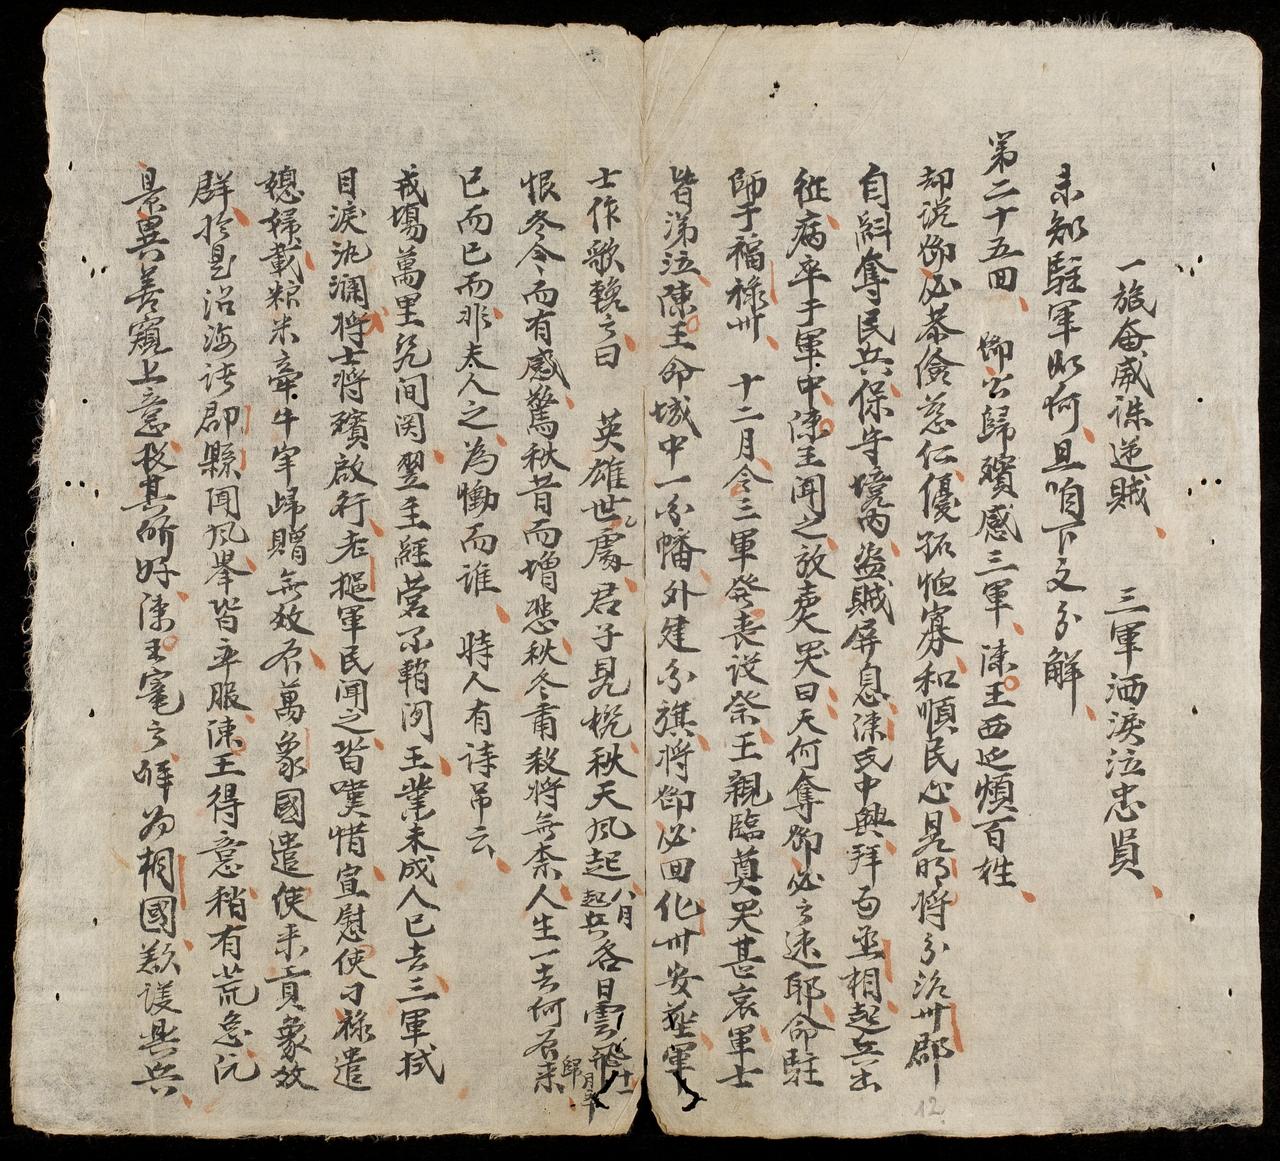 一旅奋威誅逆賊 三軍洒淚泣忠員
未知駐軍如何且咱下文分解
第二十五回 御公歸殯感三軍 陳王西廵煩百姓
却说御必恭儉慈仁優拓恤寡和順民心是时將分治卅郡
自糾奪民兵保守境内盗賊屏息陳氏中興拜为丞相起兵出
征病卒于軍中陳王闻之放声大哭曰天何奪御必之速耶命駐
師于福禄卅 十二月令三軍發丧设祭王親臨奠哭甚哀軍士
皆涕泣陳王命城中一分幡外建分旗將御必回化卅安葬軍
士作歌輓之曰 英雄世處君子見榄秋天风起八月起兵各日雲飛
恨冬令而有感驚秋昔而增悲秋冬肃殺將無柰人生一去何不来
已而已而非夫人之為慟而谁 時人有诗吊云
戎塲萬里気间関翌主經营不暫闲王業未成人已去三軍拭
目淚汍澜將士將殯啟行老摳軍民闻之皆嘆惜宣慰使刁禄遣
媳婦載粽米牽牛宰歸贈無效不萬象國遣使来貢象效
群於是沿海诸郡縣闻风举皆卒服陳王得意稍有荒怠沅
景異善窺上意投其所好陳王寵之拜为相國歉谋興兵
12